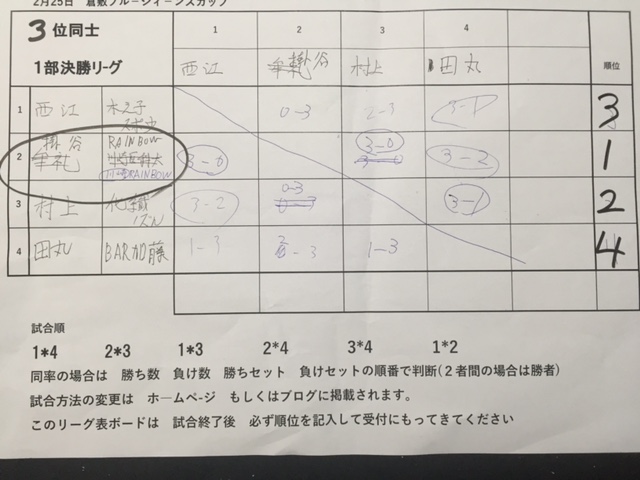 2月25日 倉敷ブルージィーンズカップ
3位同士 1 2 3 4
1部決勝リーグ 西江 掛谷 村上 田丸 順位
1 西江 木之子スポ少 0-3 2-3 3-1 3
2 掛谷 RAINBOW 川崎RAINBOW 3-0 3-0 3-2 1
3 村上 化織ノズル 3-2 0-3 3-1 2
4 田丸 BAR加藤 1-3 2-3 1-3 4
試合順
1*4 2*3 1*3 2*4 3*4 1*2
同率の場合は 勝ち数 負け数 勝ちセット 負けセットの順番で判断(2者間の場合は勝者)
試合方法の変更は ホームページ もしくはブログに掲載されます。
このリーグ表ボードは 試合終了後 必ず順位を記入して受付にもってきてください